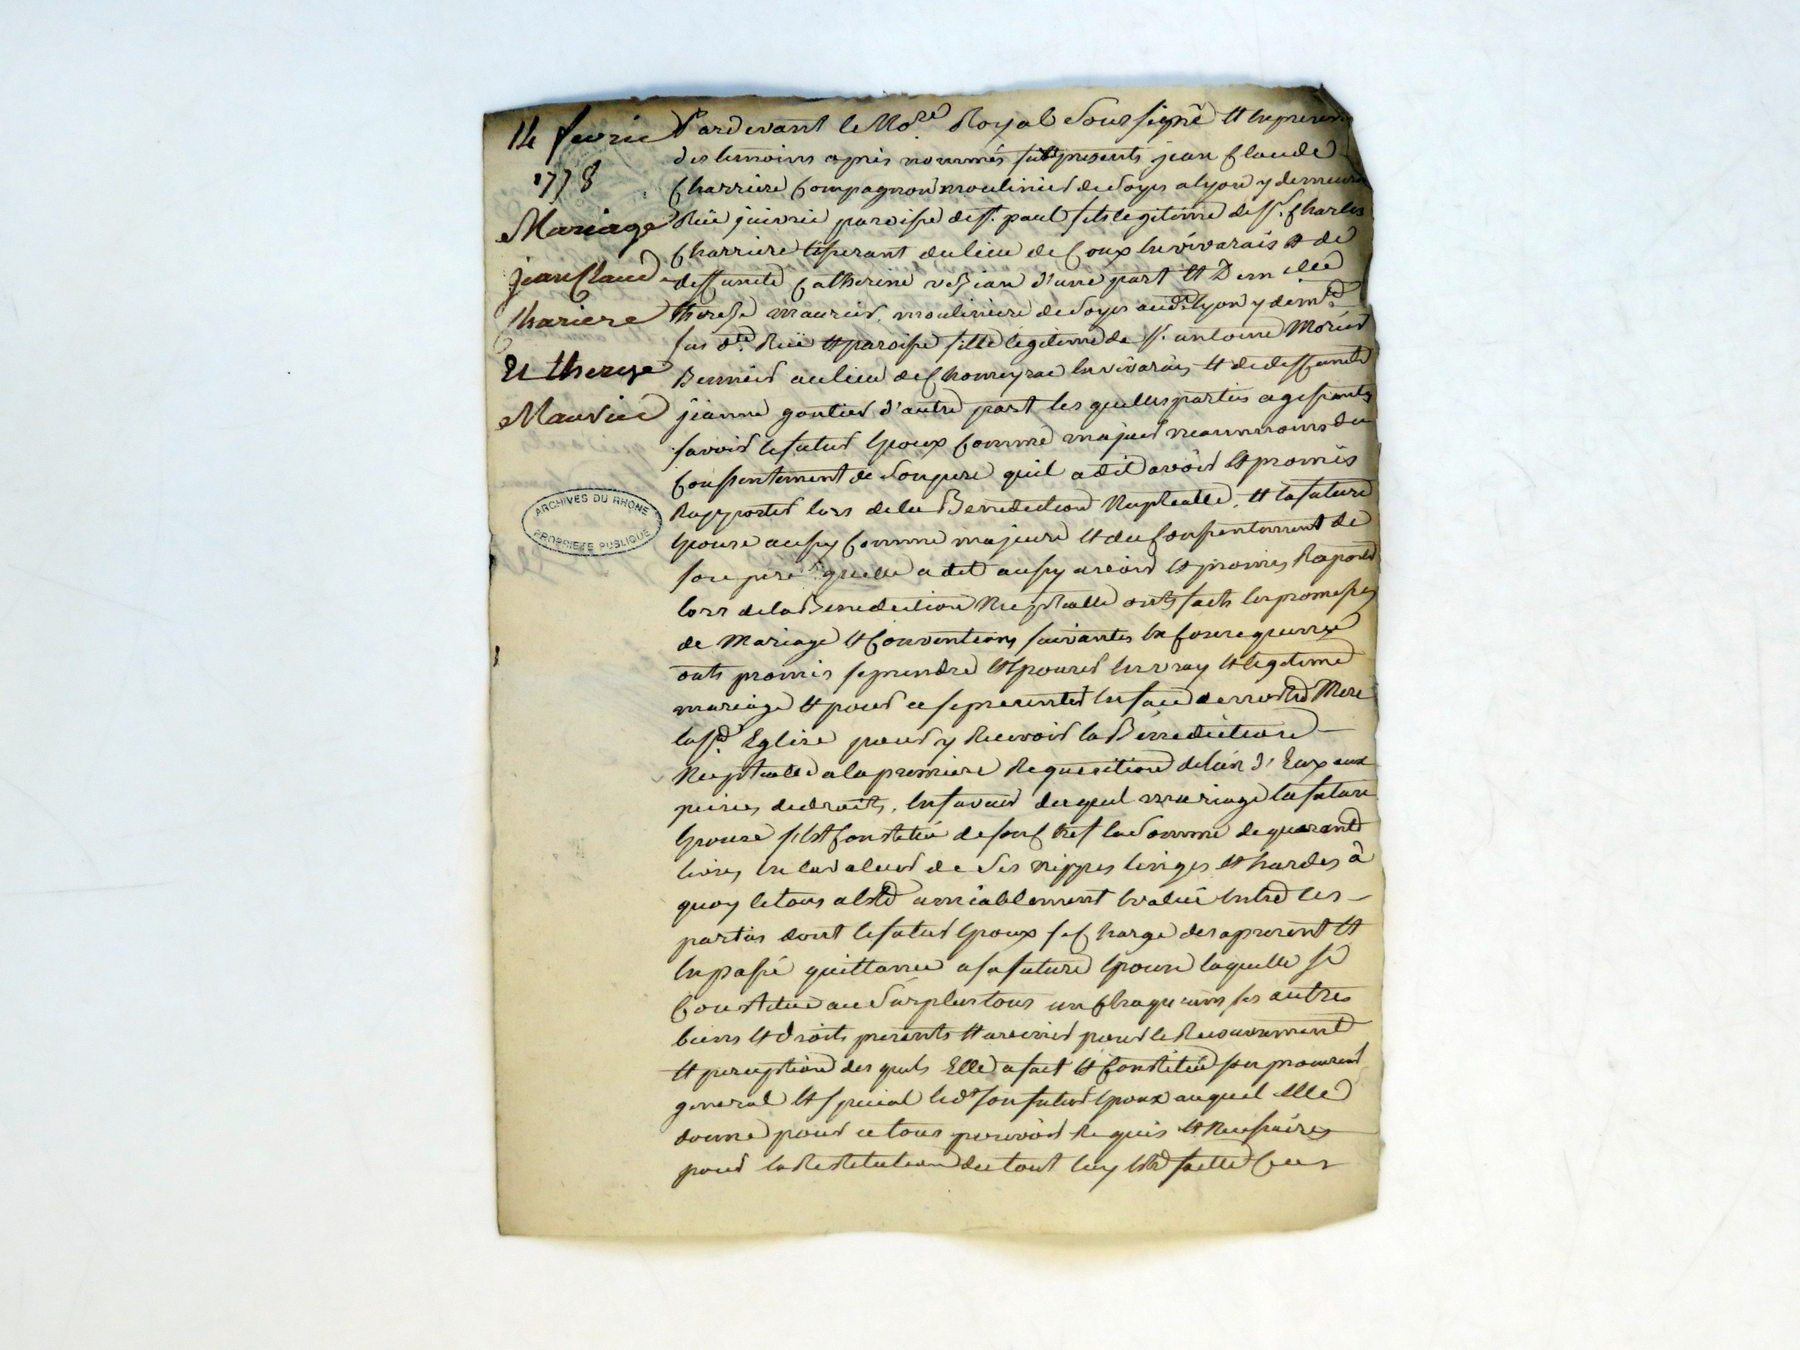 14 fevrie
1778
Mariage
jean Claude
Chariere
Et therese
Maurier
ARCHIVES DU RHONE
PROPRIETE PUBLIQUE
Pardevant le No.re Royal Soussigné et en presen
des temoins apres nommés presents jean Claude
Charriere Compagnon moulinier de Soyes a lyon y demeura
Rüe juiverie paroisse de St. paul fils legitime de Sr. Charles
Charriere du lieu de Coux en vivarais et de
deffunte Catherine vezian d'une part Et Dem.elle
therese maurier moulinière de Soyes aud. lyon y dem.te
sus d.te Rüe et paroisse fille legitime de Sr. antoine Morier
du lieu de Chomeyrac en vivarais et de deffunte
jeanne gontier d'autre part les quelles parties agissantes
savoir le futur Epoux Comme majeur neanmoins du
Consentement de Son pere quil a dit avoir et promis
Rapporter lors de la Benediction Nuptialle, et la future
Epouse aussy Comme majeure et du Consentement de
son pere quelle a dit aussy avoir et promis Raporter
lors de la Benediction Nuptialle ont faits les promesses
de Mariage et Conventions suivantes
onts promis se prendre et Epouser en vray et legitime
mariage et pour ce se presenter en face de notre Mere
la Ste. Eglise pour y Recevoir la Bénédiction
Nuptialle a la premiere Requisition de l'un d'Eux aux
peines de droits, en faveur du quel mariage la future
Epouse s'est Constituée de son Chef la Somme de quarante
livres en la valeur de Ses nippes linges et hardes à
quoy le tous a Eté amiablement Evalué entre les
parties dont le futur Epoux se Charge des a present et
en passe quittance a sa future Epouse laquelle se
Constitue au Surplus tous un Chaquuns ses autres
biens et droits presents et avenir pour le Recouvrement
et perception des quels Elle a fait et Constitué son procureur
general et special led. son futur Epoux auquel elle
donne pour ce tous pouvoir Requis et Necessaires
pour la Restitution du tout luy Etre faitte